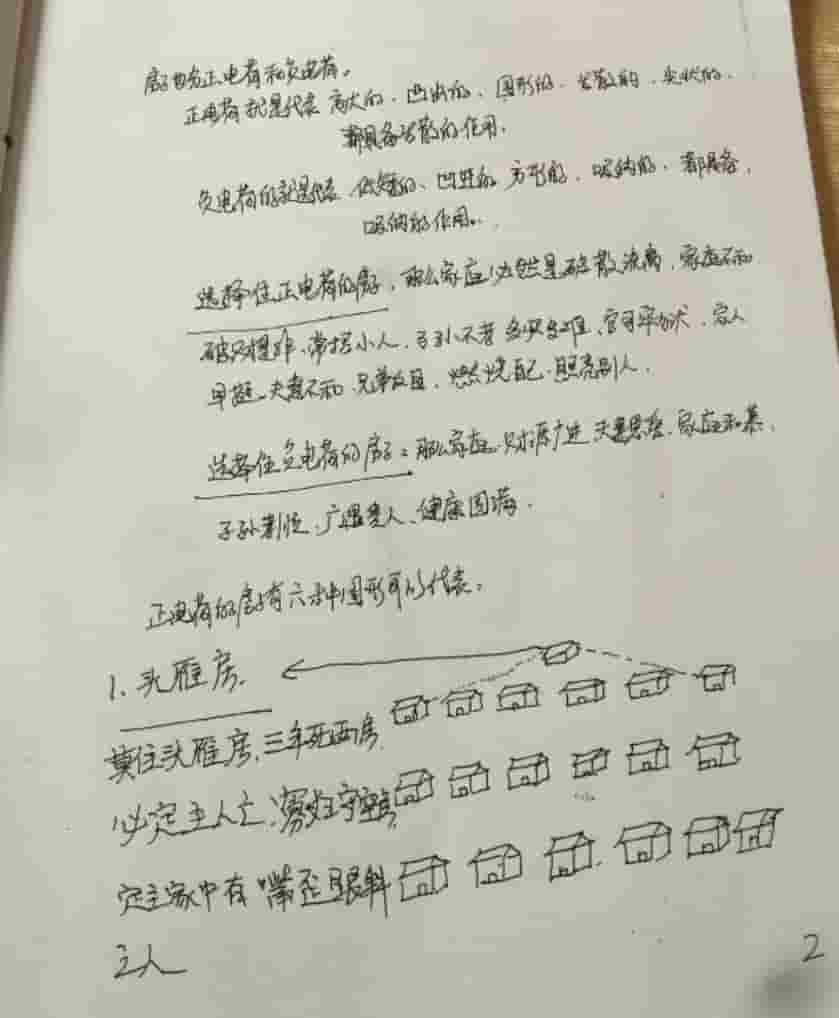 房子也分正电荷和负电荷。
正电荷就是代表高大的、凸出的、圆形的、发散的、尖状的、
都具备发散的作用。
负电荷的就是代表 低矮的、凹进的 方形的、吸纳的、都具备,
吸纳的作用。
选择住正电荷的房子,那么家庭必然是破散流离,家庭不和
破财损 常招小人、子孙不孝 官司牢狱、家人
夫妻不和 兄弟反目、燃烧自己、照亮别人、
选择住负电荷的房子:那么家庭 财源广进 夫妻恩爱、家庭和慕、
子孙 广遇贵人、健康圆满、
正电荷的房子有六种图形可以代表。
1、头雁房、
莫住头雁房、三年死两房
必定主人亡、寡妇守空房
定主家中有嘴歪眼斜
之人
2